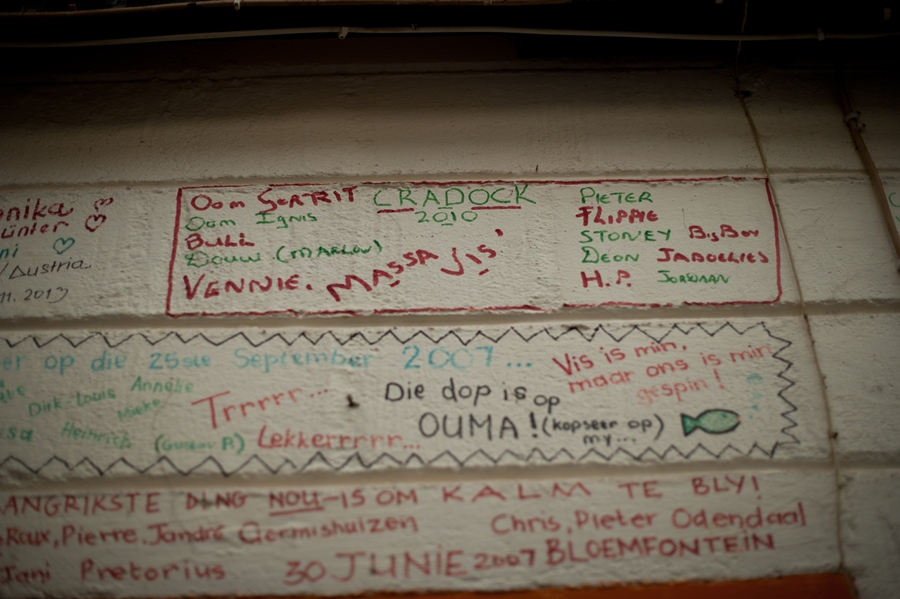 onika
ünter
ni
/Austria
11. 2013
Oom GERRIT CRADOCK
Oom Ignis 2010
BULL
Douw (MARLOW)
VENNIE. MASSA JIS'
PIETER
FLIPPIE
STONEY
DEON
H.P. JORDAAN
er op die 25ste September 2007...
Dirk-Louis Annelie
Mieke
Heinrich
Trrrrr...
Lekkerrrrr...
Die dop is op
OUMA! (kopseer op)
my...
Vis is min,
maar ons is mir
gespin!
ANGRIKSTE DING NOU-IS OM KALM TE BLY!
Roux, Pierre. Jandré Germishuizen Chris, Pieter Odendaal
Jani Pretorius 30 JUNIE 2007 BLOEMFONTEIN